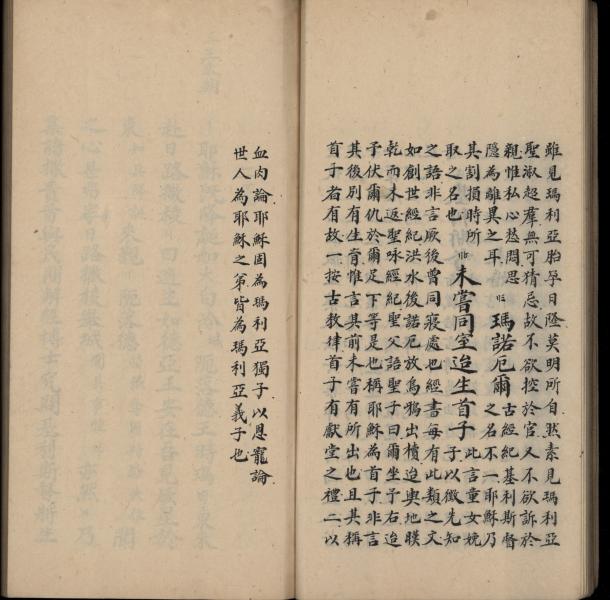 雖見瑪利亞胎孕日隆莫明所自然素見瑪利亞
聖淑超羣無可猜忌故不欲控於官又不欲訴於
親惟私心愁悶思
隱為離異之耳 瑪諾厄爾 古經紀基利斯督之名不一耶穌乃
其割損時所取之名也 未嘗同室迨生首子 此言童女娩子以徵先知
之語非言厥後曾同寢處也經書每有此類之文
如創世經紀洪水後諾厄放烏鴉出櫝迨輿地暵
乾而未返聖咏經紀聖父語聖子曰爾坐予右迨
予伏爾仇於爾足下等是也稱耶穌為首子非言
其後別有生育惟言其前未嘗有所出也且其稱
首子者有故一按古教律首子有獻堂之禮二以
血肉論耶穌固為瑪利亞獨子以恩寵論
世人為耶穌之弟皆為瑪利亞義子也